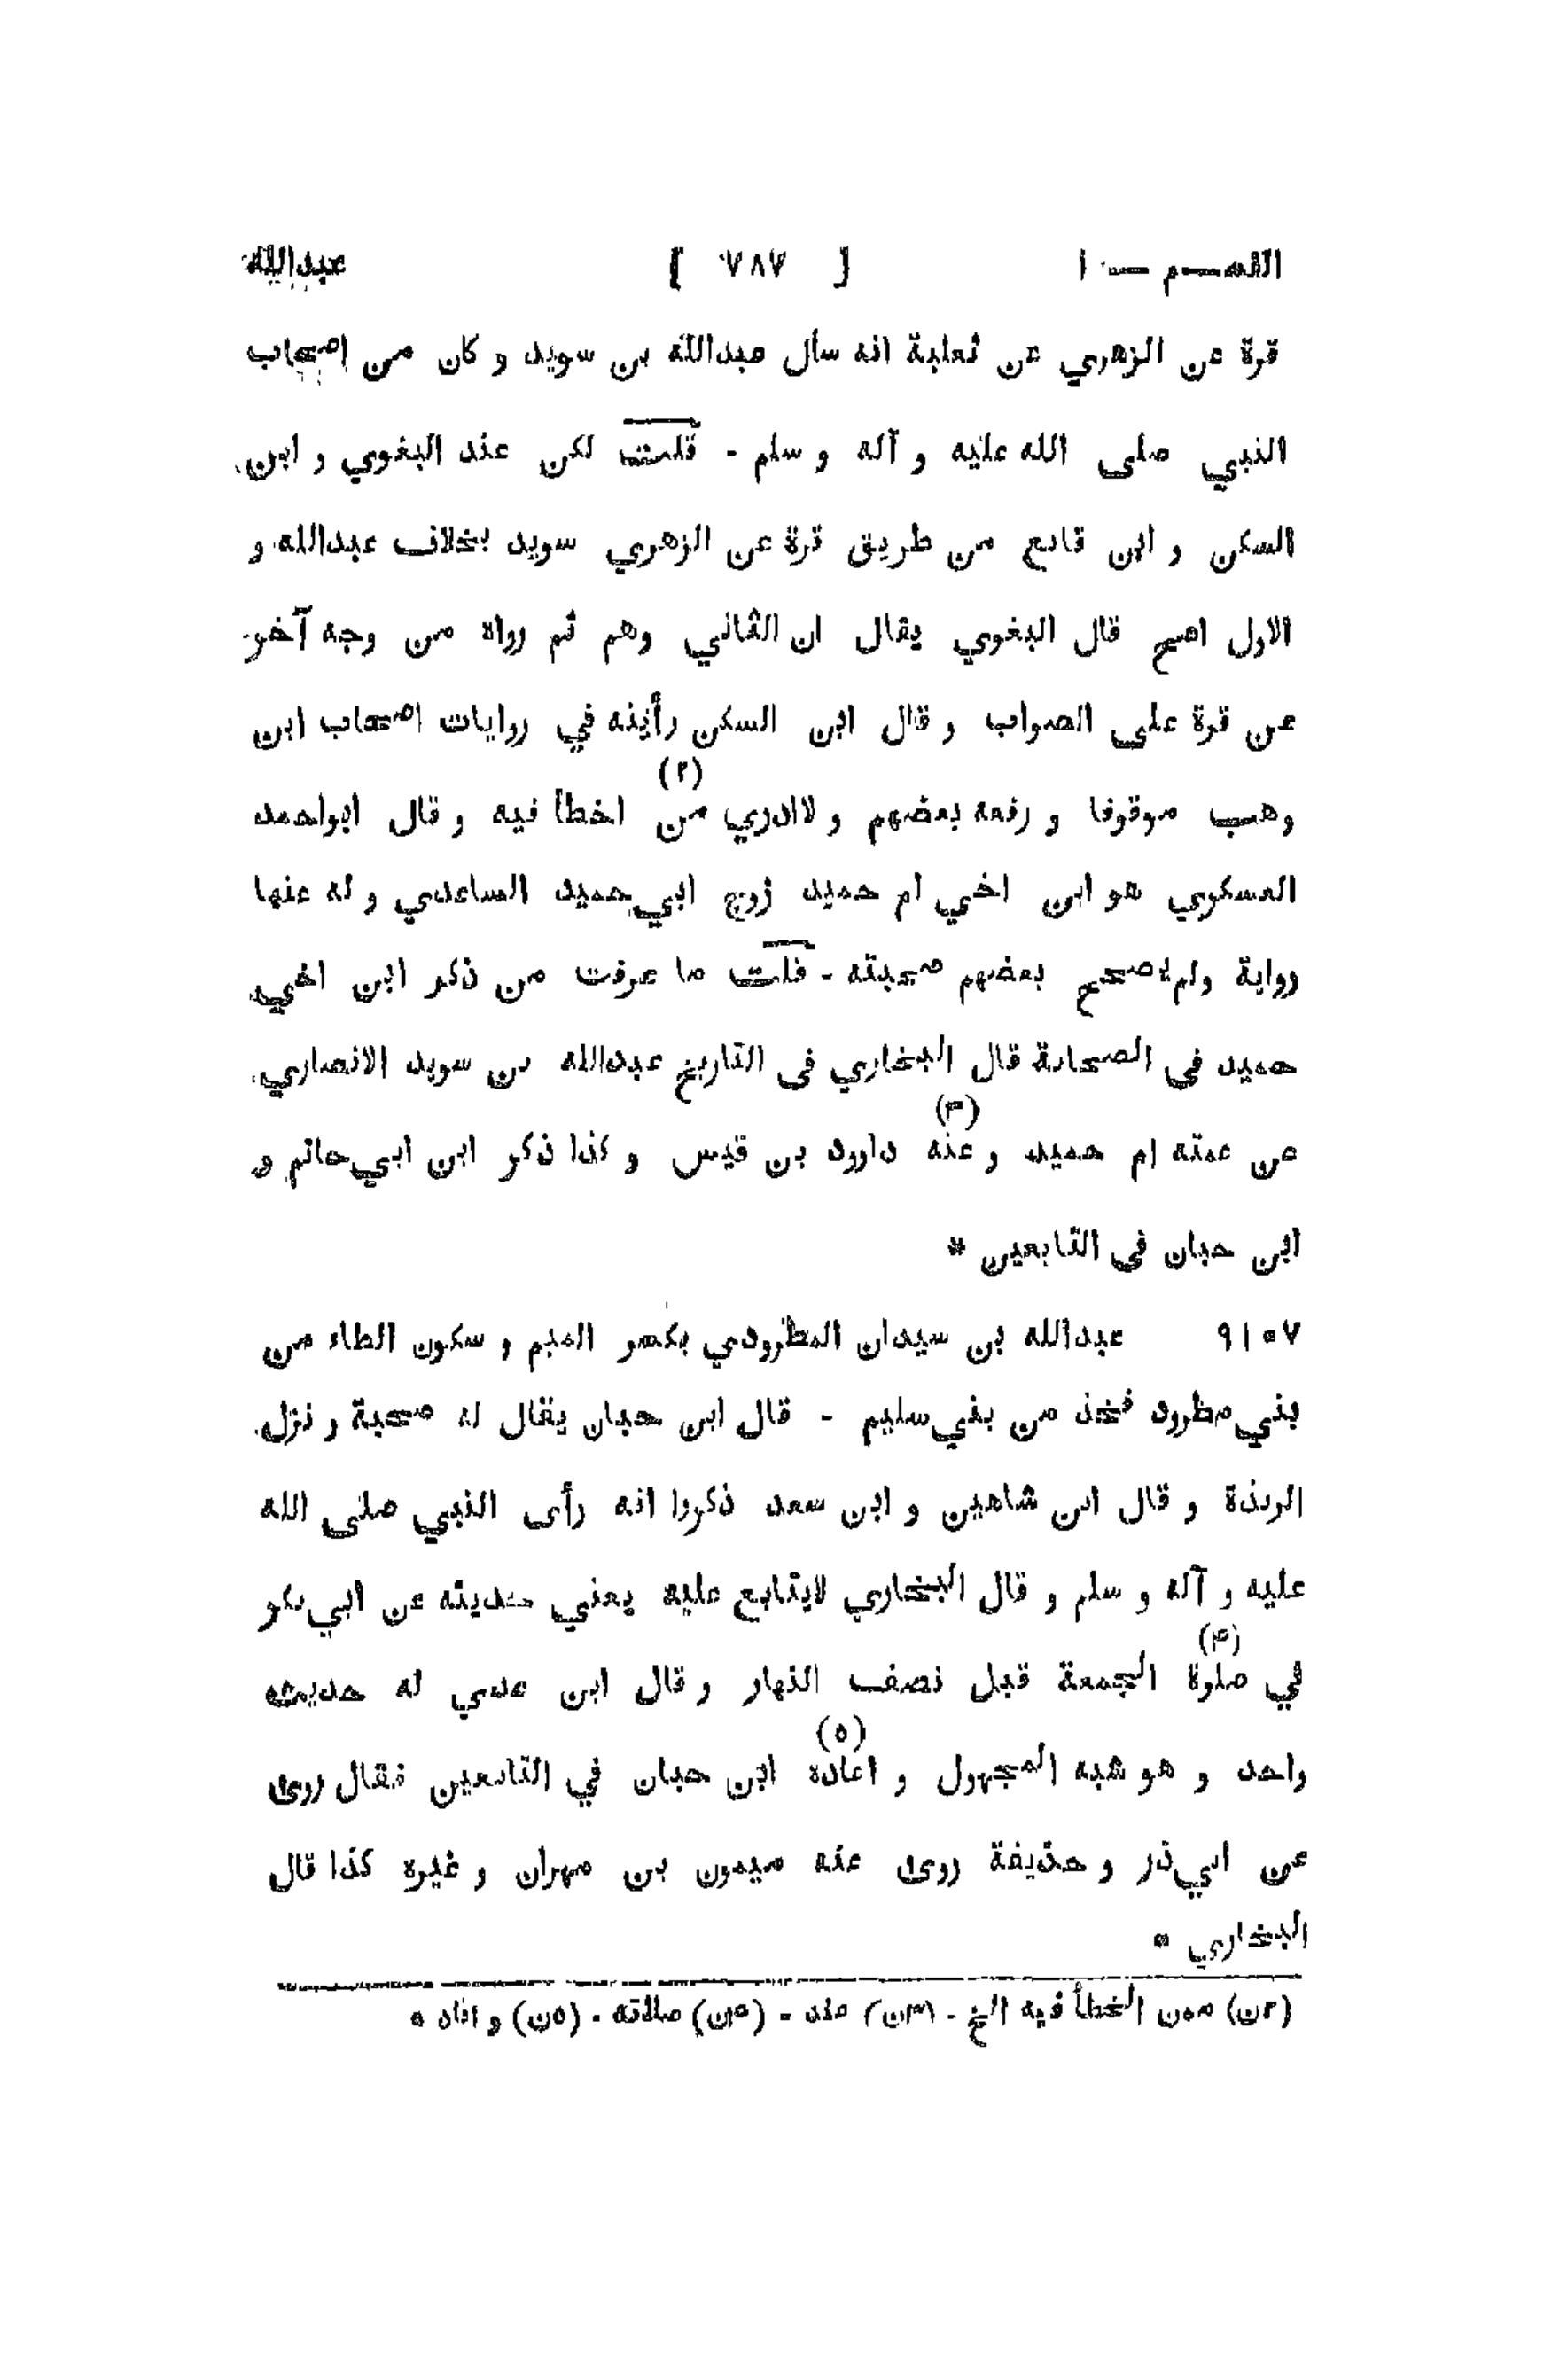 القسم — ١ [ ٧٨٧ ] عبدالله
قرة عن الزهري عن ثعلبة انه سأل عبدالله بن سويد و كان من اصحاب
النبي صلى الله عليه و آله و سلم - قلت لكن عند البغوي و ابن
السكن و ابن قانع من طريق قرة عن الزهري سويد بخلاف عبدالله و
الاول اصح قال البغوي يقال ان الثاني وهم ثم رواه من وجه آخر
عن قرة على الصواب و قال ابن السكن رأيته في روايات اصحاب ابن
وهب موقوفا و رفعه بعضهم و لاادري من (٢) اخطأ فيه و قال ابواحمد
العسكري هو ابن اخي ام حميد زوج ابي حميد الساعدي و له عنها
رواية ولم يصحح بعضهم صحبته - قلت ما عرفت من ذكر ابن اخي
حميد في الصحابة قال البخاري في التاريخ عبدالله بن سويد الانصاري
عن عمته ام حميد و عنه (٣) داوود بن قيس و كذا ذكر ابن ابي حاتم و
ابن حبان في التابعين *
٩١٥٧ عبدالله بن سيدان المطرودي بكسر الميم و سكون الطاء من
بني مطرود فخذ من بني سليم - قال ابن حبان يقال له صحبة و نزل
الربذة و قال ابن شاهين و ابن سعد ذكروا انه رأى النبي صلى الله
عليه و آله و سلم و قال البخاري لايتابع عليه يعني حديثه عن ابي بكر
في صلوة (۴) الجمعة قبل نصف النهار و قال ابن عدي له حديث
واحد و هو شبه المجهول و اعاده (٥) ابن حبان في التابعين فقال روى
عن ابي ذر و حذيفة روى عنه ميمون بن مهران و غيره كذا قال
البخاري *
(٢ن) ممن الخطأ فيه الخ - (٣ن) عند - (۴ن) صلاته - (٥ن) و افاد *